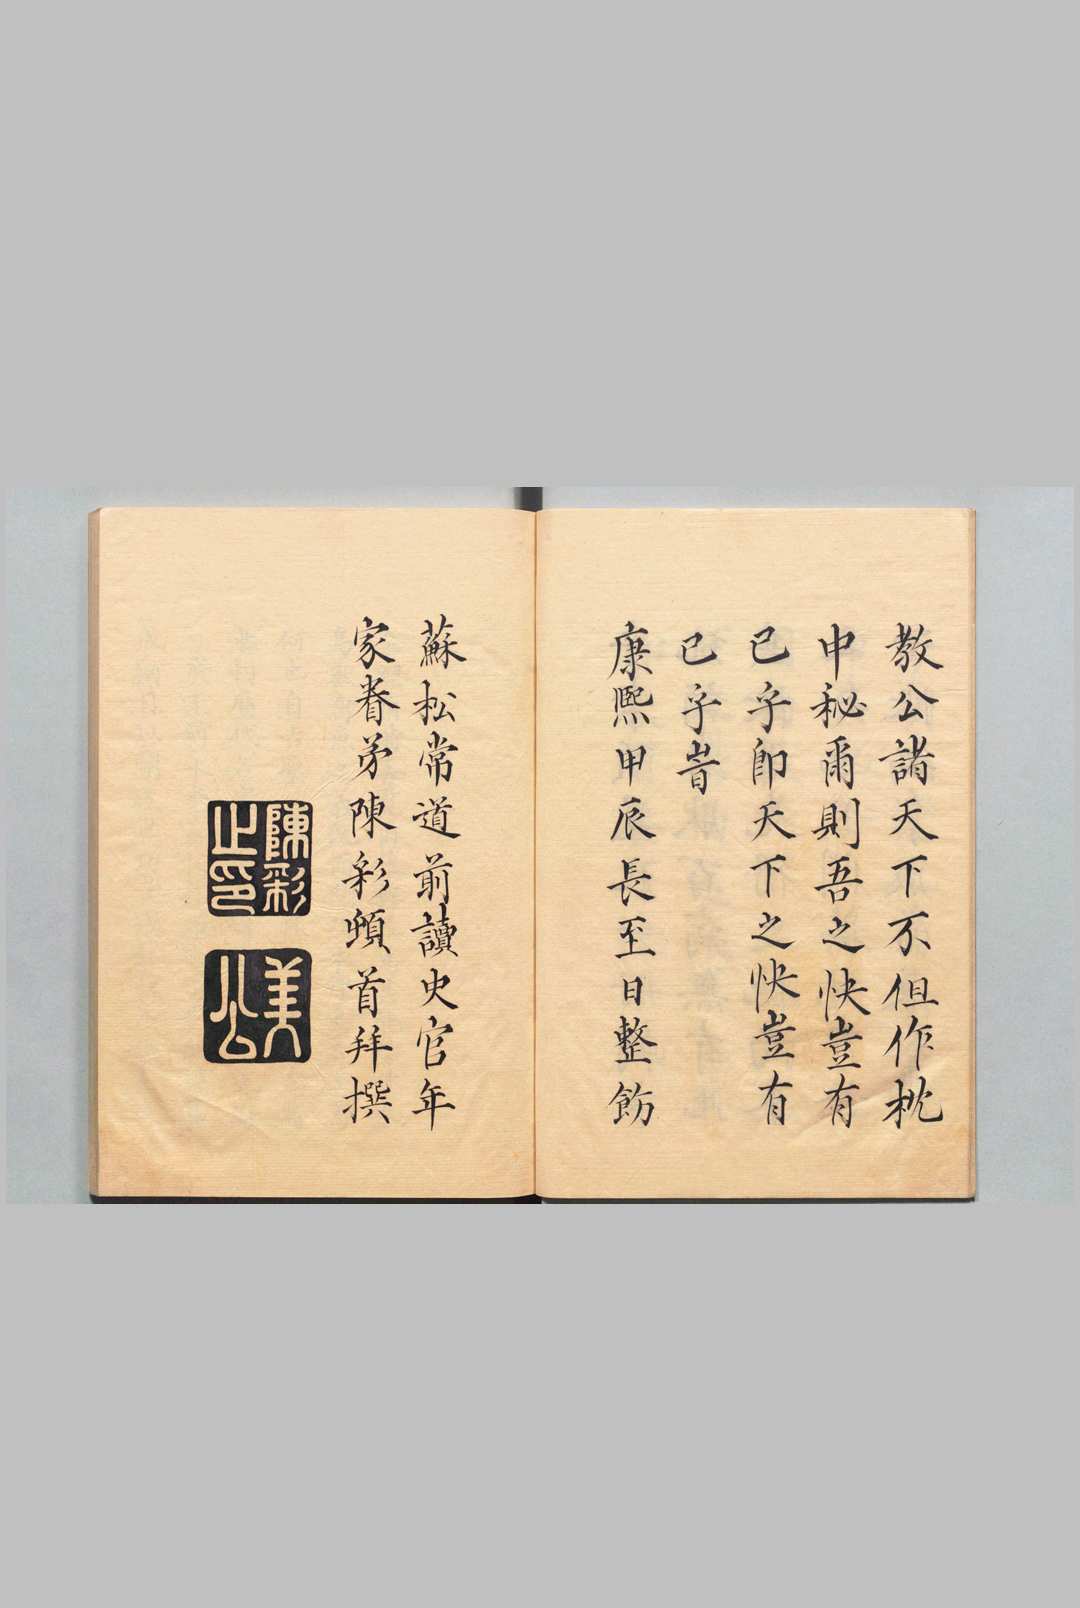 教公諸天下不但作枕
中秘爾則吾之快豈有
已乎卽天下之快豈有
已乎旹
康熙甲辰長至日整飭
蘇松常道前讀史官年
家眷弟陳彩頓首拜撰
陳彩之印
美公